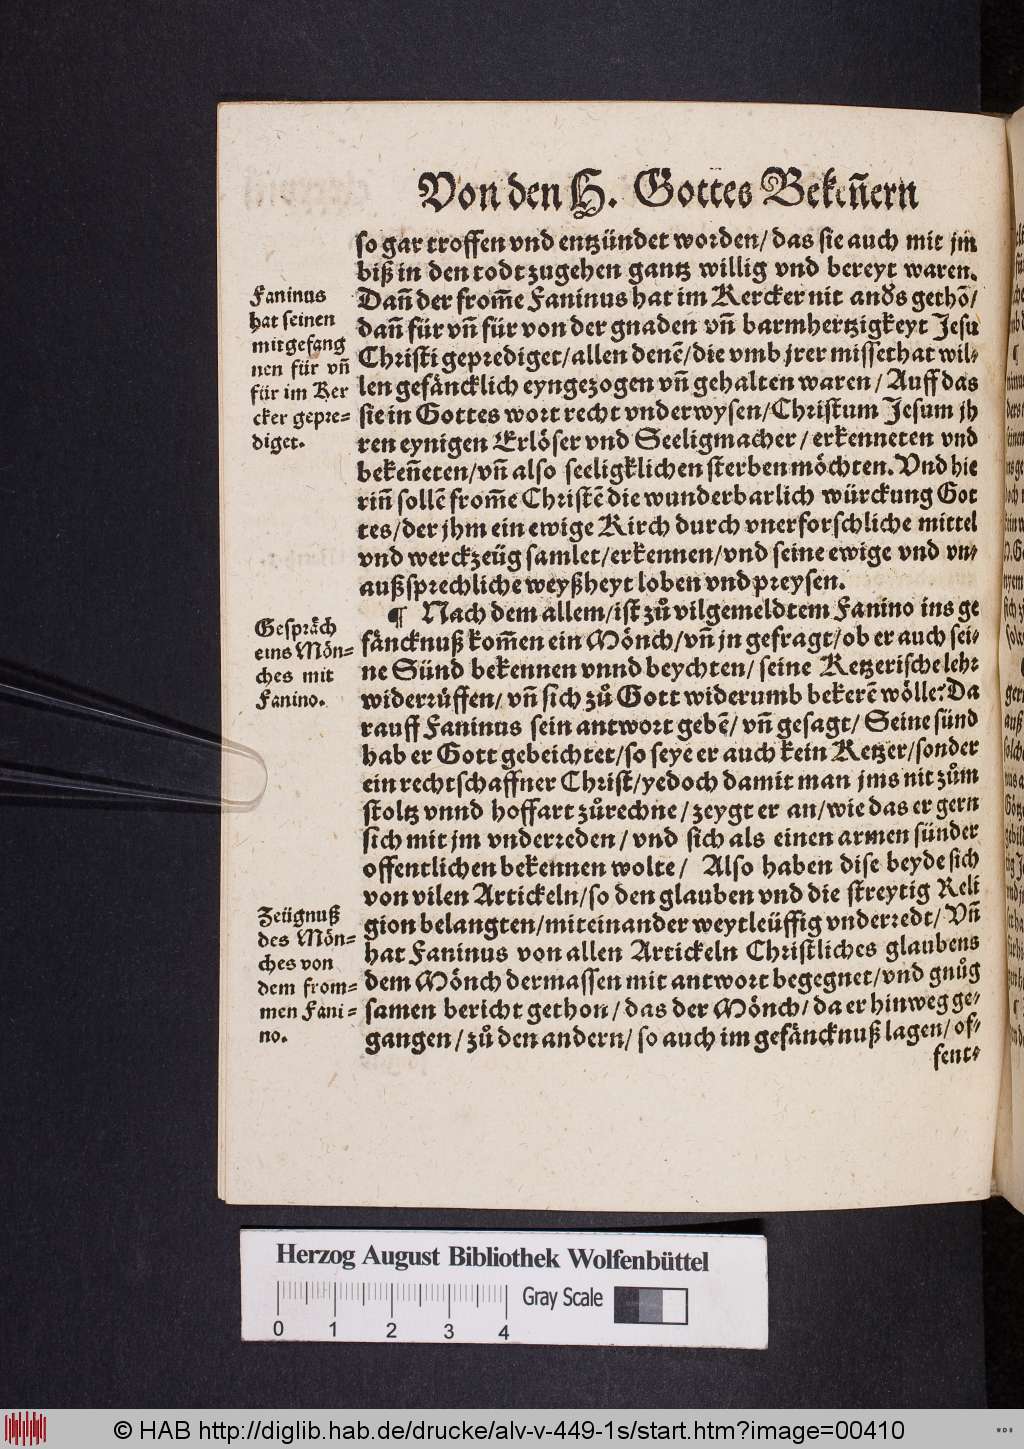 Von den H. Gottes Bekeñern
so gar troffen vnd entzündet worden/ das sie auch mit jm
biß in den todt zugehen gantz willig vnd bereyt waren.
Dañ der from̃e Faninus hat im Kercker nit anđs gethõ/
dañ für vñ für von der gnaden vñ barmhertzigkeyt Jesu
Christi geprediget/ allen denẽ/ die vmb jrer missethat wil⸗
len gefäncklich eyngezogen vñ gehalten waren/ Auff das
sie in Gottes wort recht vnderwysen/ Christum Jesum jh
ren eynigen Erlöser vnd Seeligmacher/ erkenneten vnd
bekeñeten/ vñ also seeligklichen sterben möchten. Vnd hie
riñ sollẽ from̃e Christẽ die wunderbarlich würckung Got
tes/ der jhm ein ewige Kirch durch vnerforschliche mittel
vnd werckzeüg samlet/ erkennen/ vnd seine ewige vnd vn⸗
außsprechliche weyßheyt loben vnd preysen.
¶ Nach dem allem/ ist zů vilgemeldtem Fanino ins ge
fäncknuß kom̃en ein Mönch/ vñ jn gefragt/ ob er auch sei⸗
ne Sünd bekennen vnnd beychten/ seine Ketzerische lehr
widerrüffen/ vñ sich zů Gott widerumb bekerẽ wölle? Da
rauff Faninus sein antwort gebẽ/ vñ gesagt/ Seine sünd
hab er Gott gebeichtet/ so seye er auch kein Ketzer/ sonder
ein rechtschaffner Christ/ yedoch damit man jms nit zům
stoltz vnnd hoffart zůrechne/ zeygt er an/ wie das er gern
sich mit jm vnderreden/ vnd sich als einen armen sünder
offentlichen bekennen wolte/ Also haben dise beyde sich
von vilen Artickeln/ so den glauben vnd die streytig Reli
gion belangten/ miteinander weytleüffig vnderredt/ Vñ
hat Faninus von allen Artickeln Christliches glaubens
dem Mönch dermassen mit antwort begegnet/ vnd gnůg
samen bericht gethon/ das der Mönch/ da er hinweg ge⸗
gangen/ zů den andern/ so auch im gefäncknuß lagen/ of⸗
fent⸗
Faninus
hat seinen
mitgefang
nen für vñ
für im Ker
cker gepre⸗
diget.
Gespräch
eins Mön⸗
ches mit
Fanino.
Zeügnuß
des Mön⸗
ches von
dem from⸗
men Fani⸗
no.
Herzog August Bibliothek Wolfenbüttel
0 1 2 3 4
Gray Scale
© HAB http://diglib.hab.de/drucke/alv-v-449-1s/start.htm?image=00410